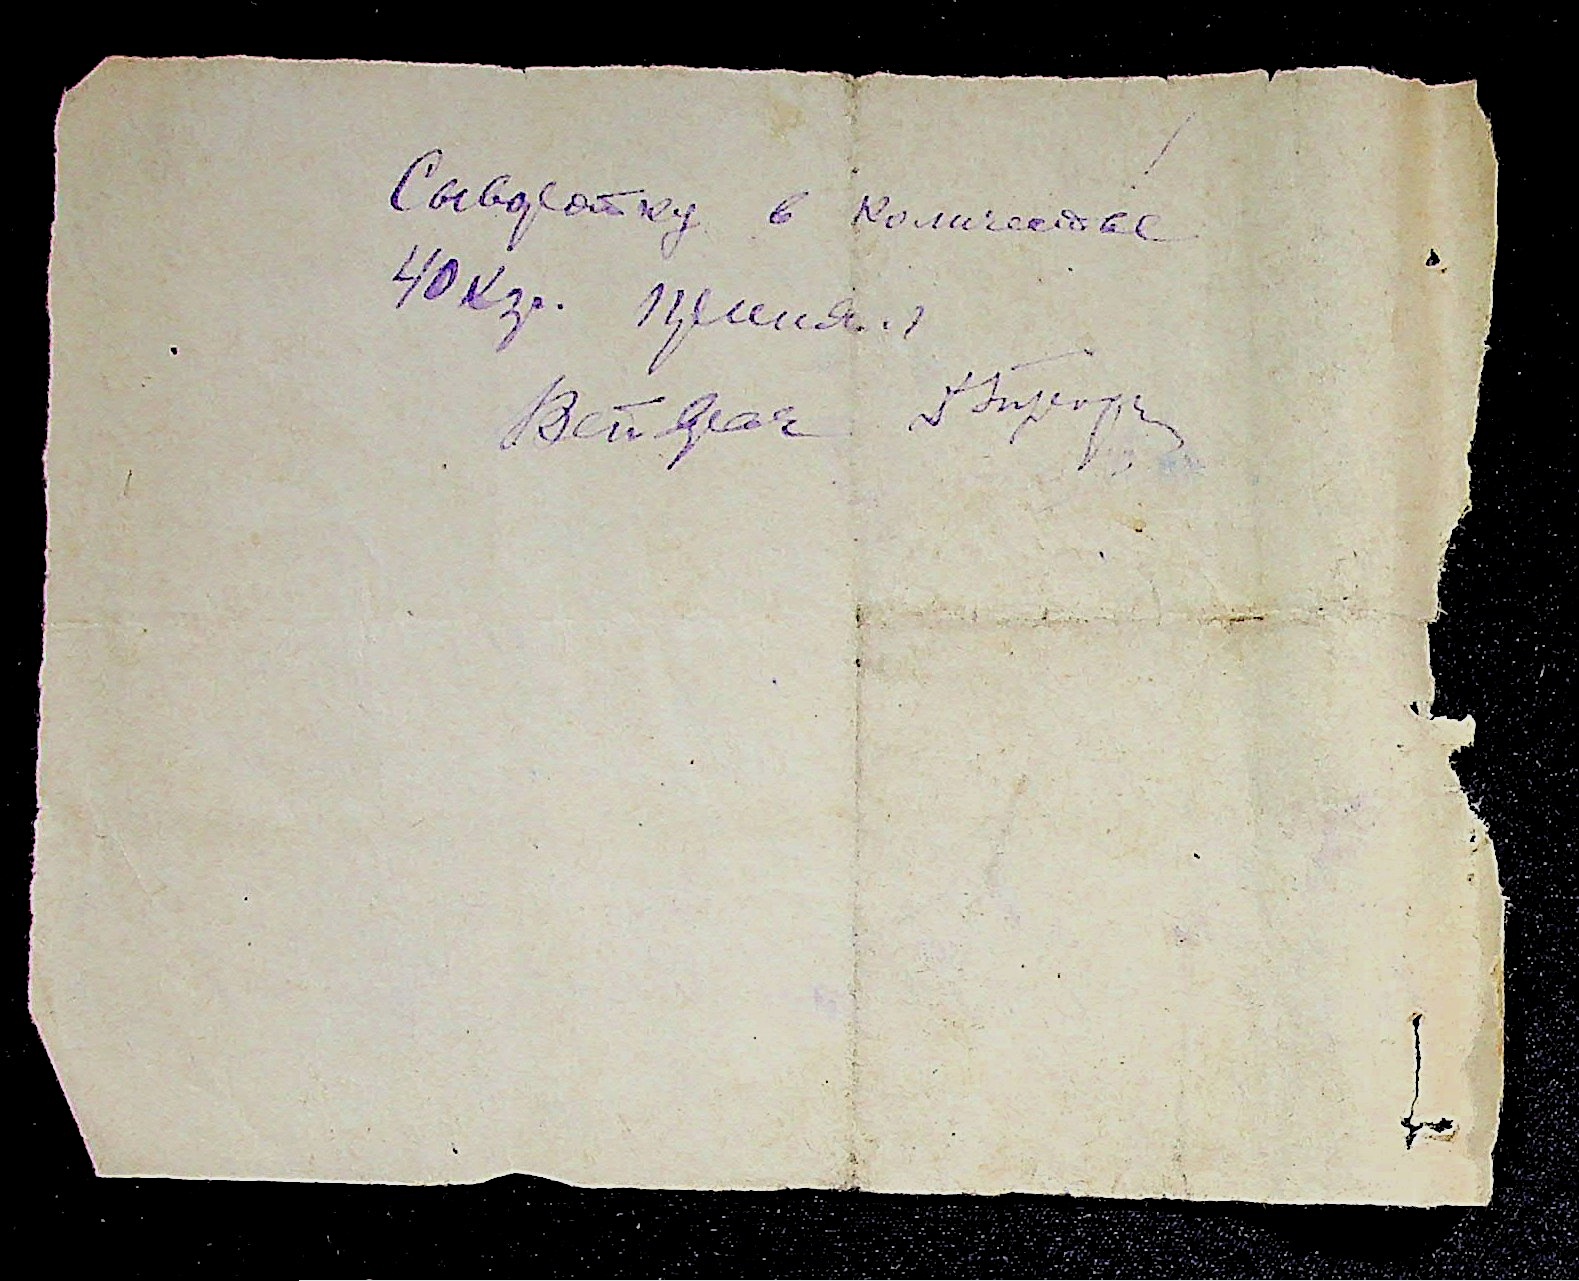 Сыворотку в количестве
40 кгр. принял
Ветврач